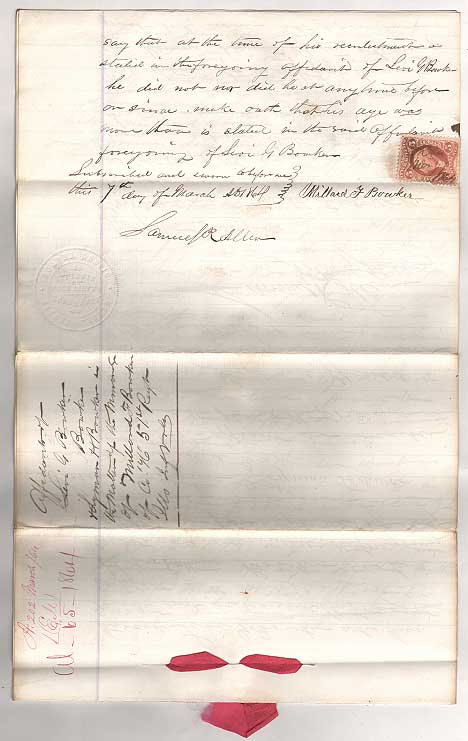 say that at the time of his reenlistment as
stated in the foregoing affidavit of Levi G Bowker
he did not nor did he at any time before
or since make oath that his age was
more than is stated in the said Affidavit
foregoing of Levi G Bowker
Subscribed and sworn before me
this 7th day of March
Millard F Bowker
Samuel R Allen
Affidavits of
Levi G Bowker
Bowker
Bowker in
the Matter of the Minority
of Millard F Bowker
of Co 57th Regt
A. 202 March/64
1864